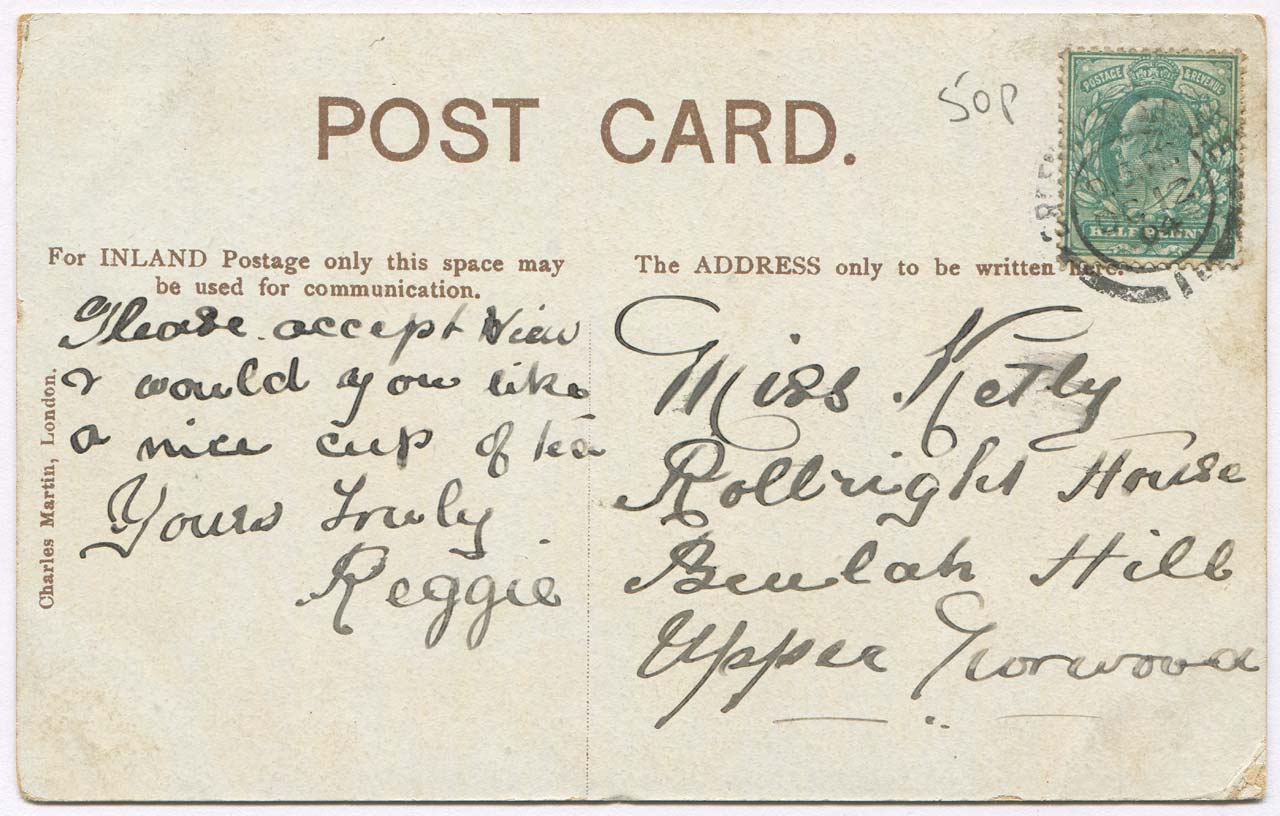 POST CARD.
50p
POSTAGE & REVENUE
HALFPENNY
For INLAND Postage only this space may
be used for communication.
The ADDRESS only to be written here.
Please accept View
& would you like
a nice cup of tea
Yours Truly
Reggie
Miss Ketly
Rollright House
Beulah Hill
Upper Norwood
Charles Martin, London.